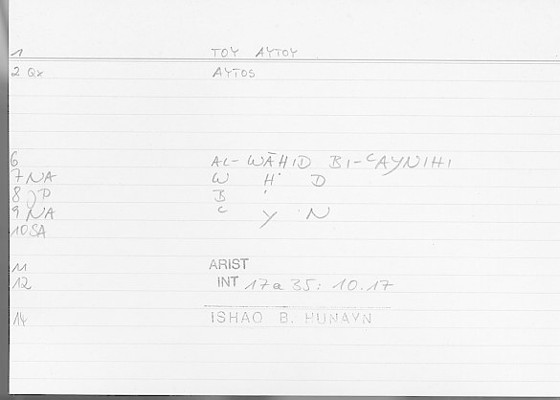 1 TOY AYTOY
2 Qx AYTOS
6 AL-WĀḤID BI-ʿAYNIHI
7 NA W Ḥ D
8 )P B
9 NA ʿ Y N
10 SA
11 ARIST
12 INT 17a 35: 10.17
14 ISHAQ B. HUNAYN